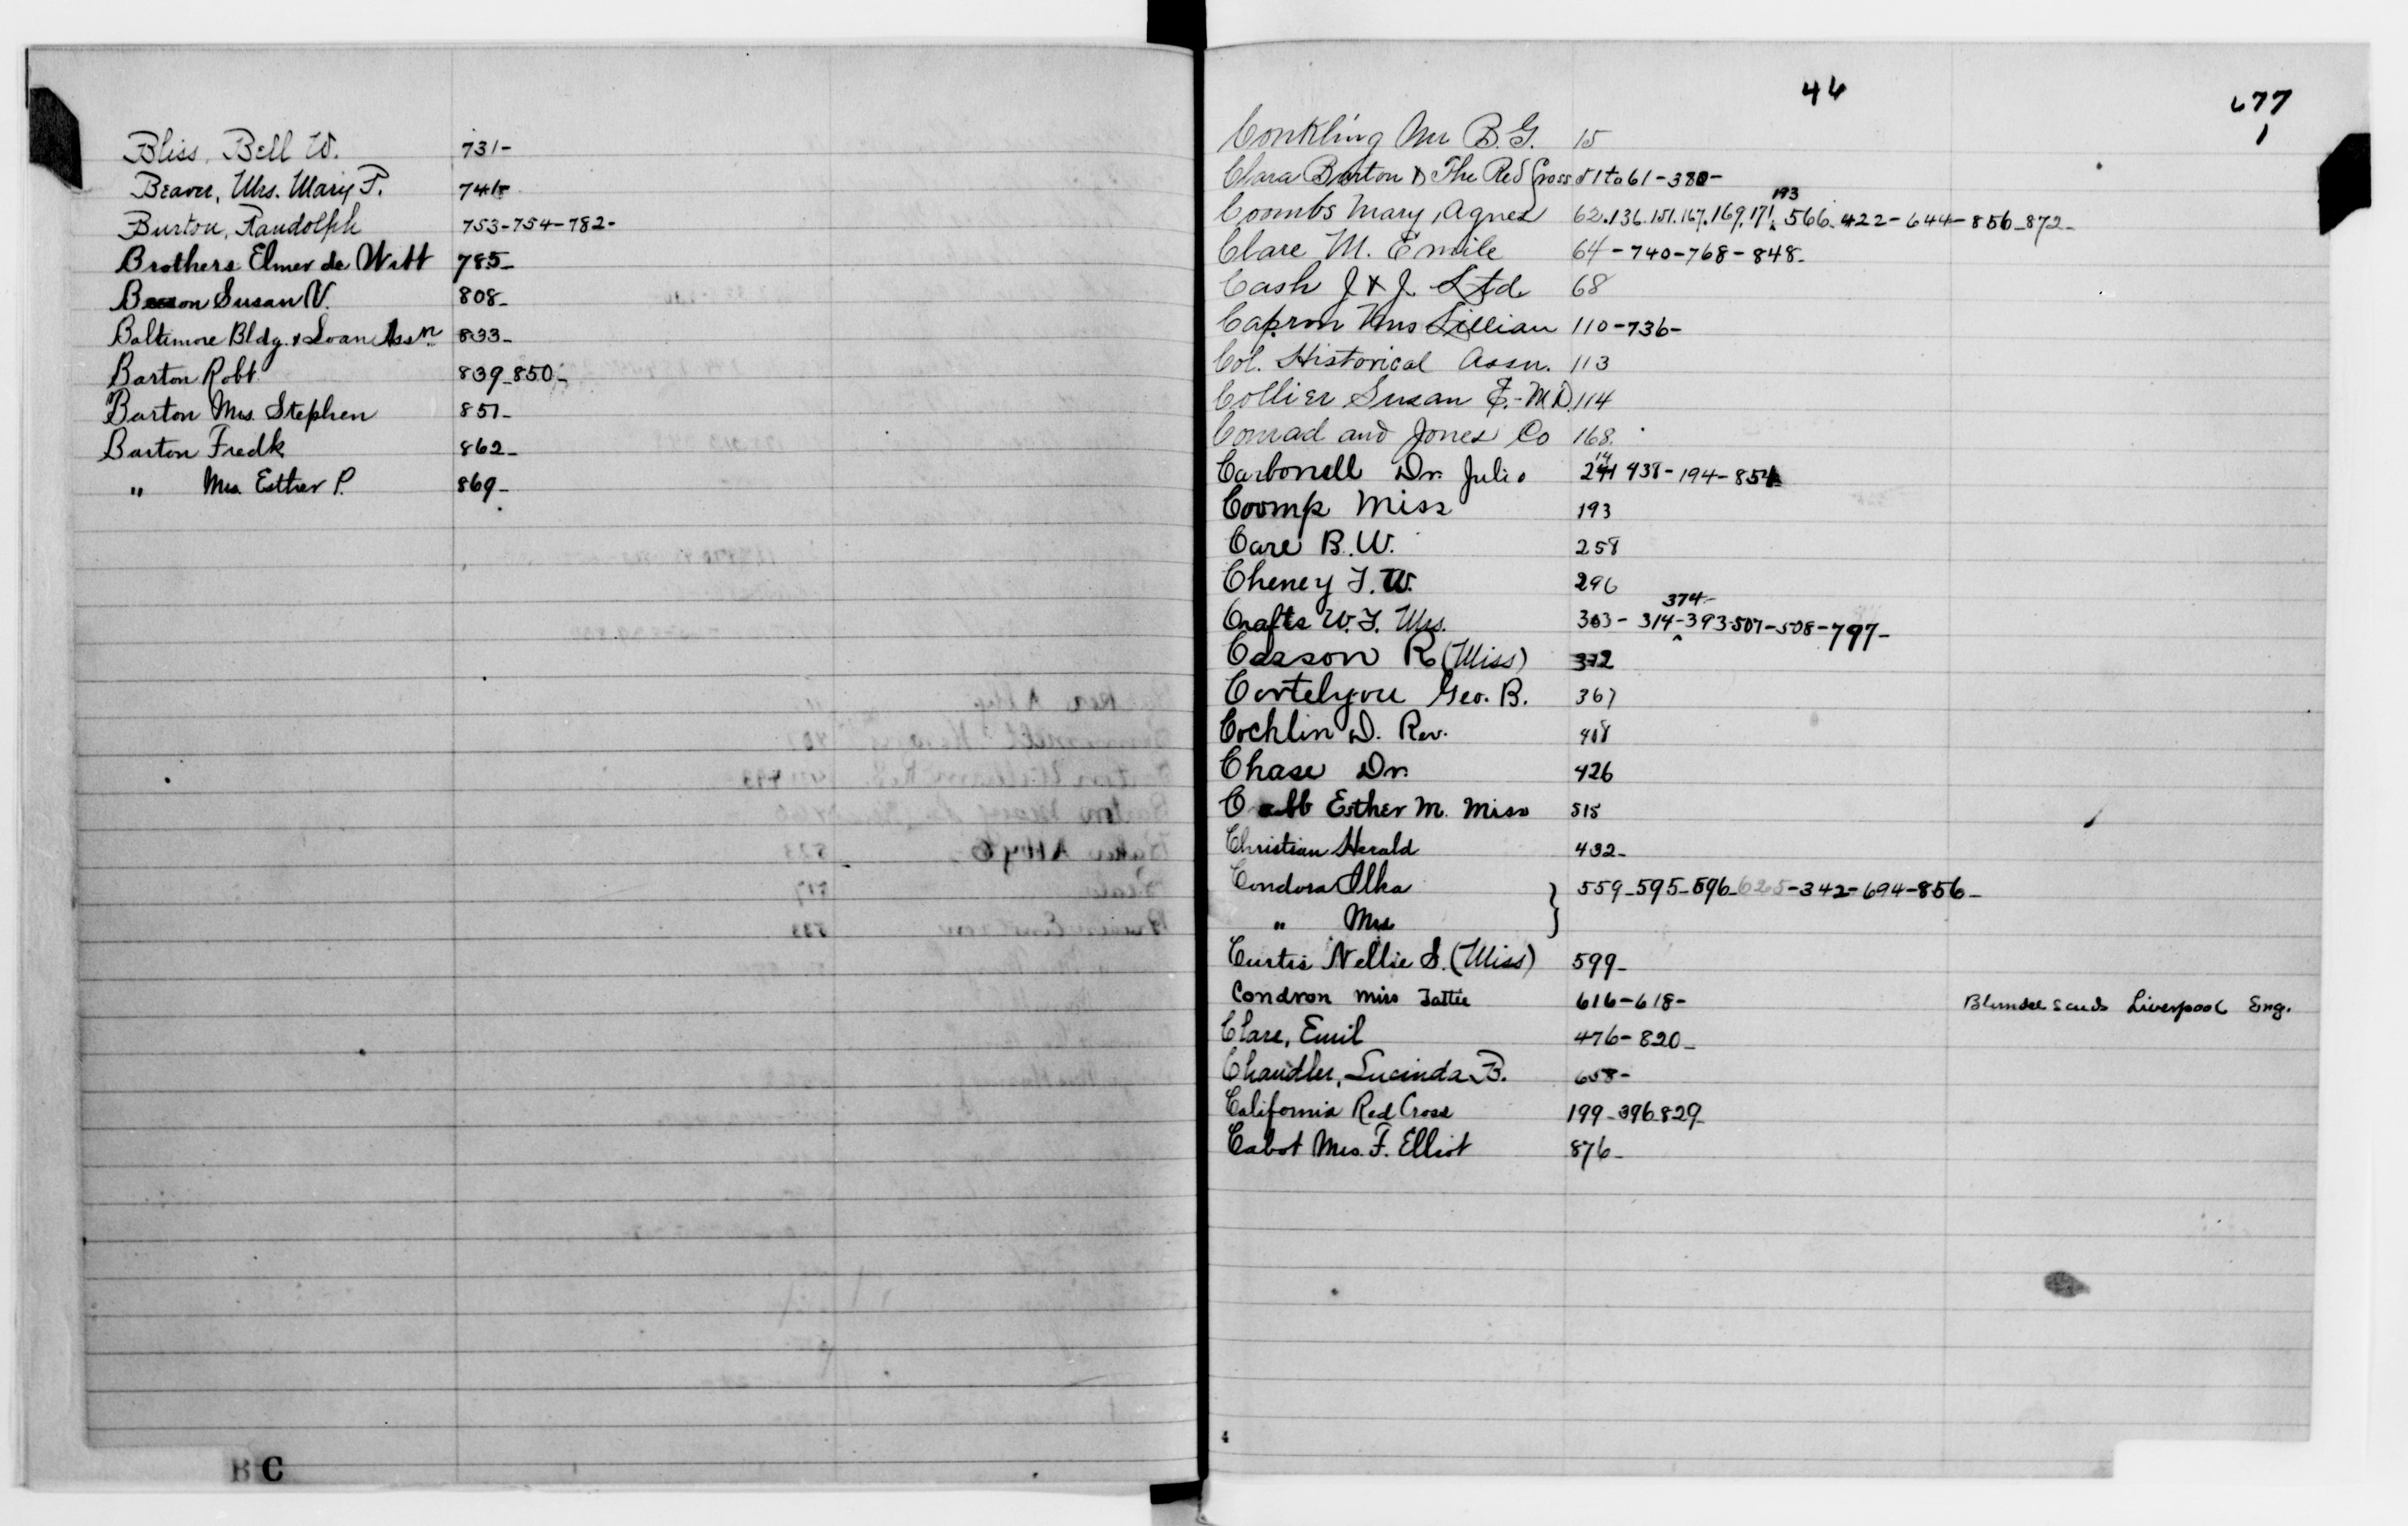 Bliss, Bell W. 731-
Beaver, Mrs. Mary P. 741-
Burton, Randolph 753-754-782-
Brothers Elmer de Witt 785-
Susan V. 808-
Baltimore Bldg. & Loan Assn 833-
Barton Robt. 839-850-
Barton Mrs. Stephen 851-
Barton Fredk 862-
" Mrs. Esther P. 869-
B C
46
677
1
Conkling Mr B. G. 15
Clara Barton & The Red Cross 51 to 61-380-
193
Coombs Mary, Agnes 62.136.151.167.169.171. 566-422-644-856-872-
Clare M. Emile 64-740-768-848-
Cash J & J Ltd. 68
Capron Lillian 110-736-
Col. Historical Assn. 113
Collier Susan E.-M.D. 114
Conrad and Jones Co 168.
14
Carbonell Dr. Julio 438-194-854
Coomp Miss 193
Care B. W. 258
Cheney F. W. 296
374-
Crafts W. F. Mrs. 303-314-393-507-508-797-
Casson R (Miss) 372
Cortelyou Geo. B. 367
Cochlin D. Rev. 418
Chase Dr. 426
Cobb Esther M. Miss 515
Christian Herald 432-
Condora Alka 559-595-596-625-342-694-856-
" Mrs
Curtis Nellie S. (Miss) 599-
Condron Miss Tattie 616-618- Blundellsands Liverpool Eng.
Clare, Emil 476-820-
Chandler, Lucinda B. 658-
California Red Cross 199-396-829-
Cabot Mrs. F. Elliot 876-